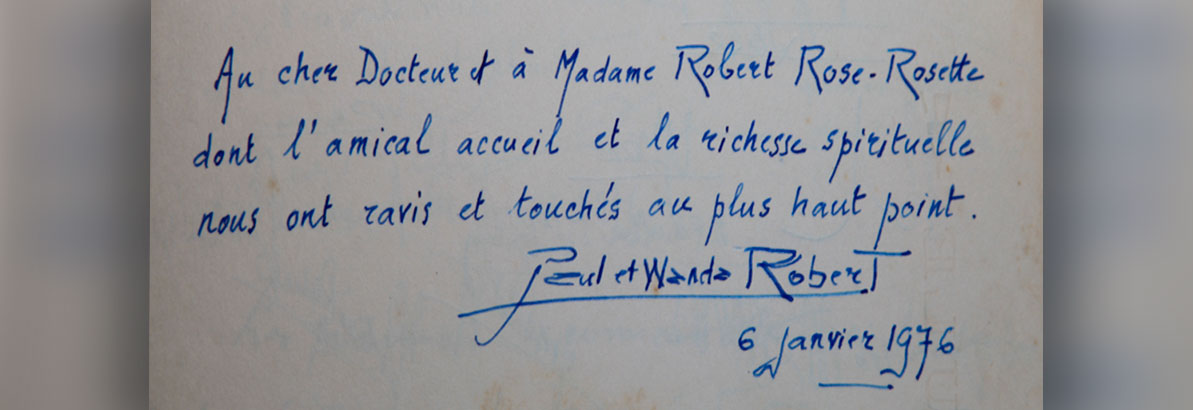 Au cher Docteur et à Madame Robert Rose-Rosette
dont l'amical accueil et la richesse spirituelle
nous ont ravis et touchés au plus haut point.
Paul et Wanda Robert
6 janvier 1976